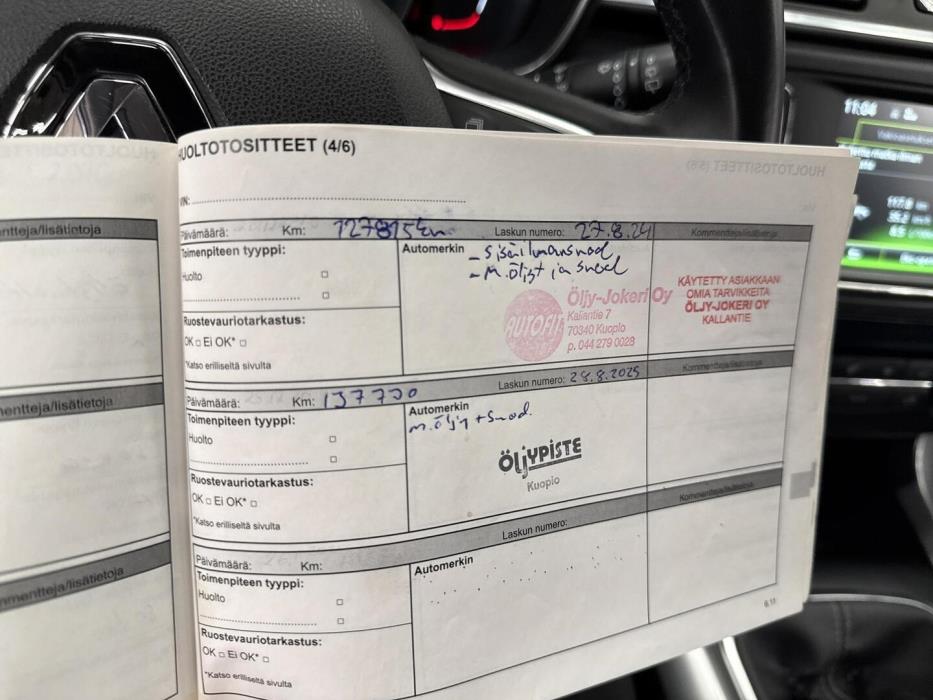 HUOLTOTOSITTEET (4/6)
entteja/lisätietoja
Päivämäärä: Km: 127815km Laskun numero: 27.8.24 Kommentteja/lisätietoja
Toimenpiteen tyyppi:
Huolto
Automerkin
- sisäilmansuod
- m.öljyt ja suod
Öljy-Jokeri Oy
AUTOFIT
Kallantie 7
70340 Kuopio
p. 044 279 0028
KÄYTETTY ASIAKKAAN
OMIA TARVIKKEITA
ÖLJY-JOKERI OY
KALLANTIE
Ruostevauriotarkastus:
OK Ei OK*
*Katso erilliseltä sivulta
mentteja/lisätietoja
Päivämäärä: Km: 137730 Laskun numero: 28.8.2025 Kommentteja/lisätietoja
Toimenpiteen tyyppi:
Huolto
Automerkin
m.öljy + suod.
ÖLJYPISTE
Kuopio
Ruostevauriotarkastus:
OK Ei OK*
*Katso erilliseltä sivulta
mmentteja/lisätietoja
Päivämäärä: Km: Laskun numero: Kommentteja/lisätietoja
Toimenpiteen tyyppi:
Huolto
Automerkin
Ruostevauriotarkastus:
OK Ei OK*
*Katso erilliseltä sivulta
6.11
11:04